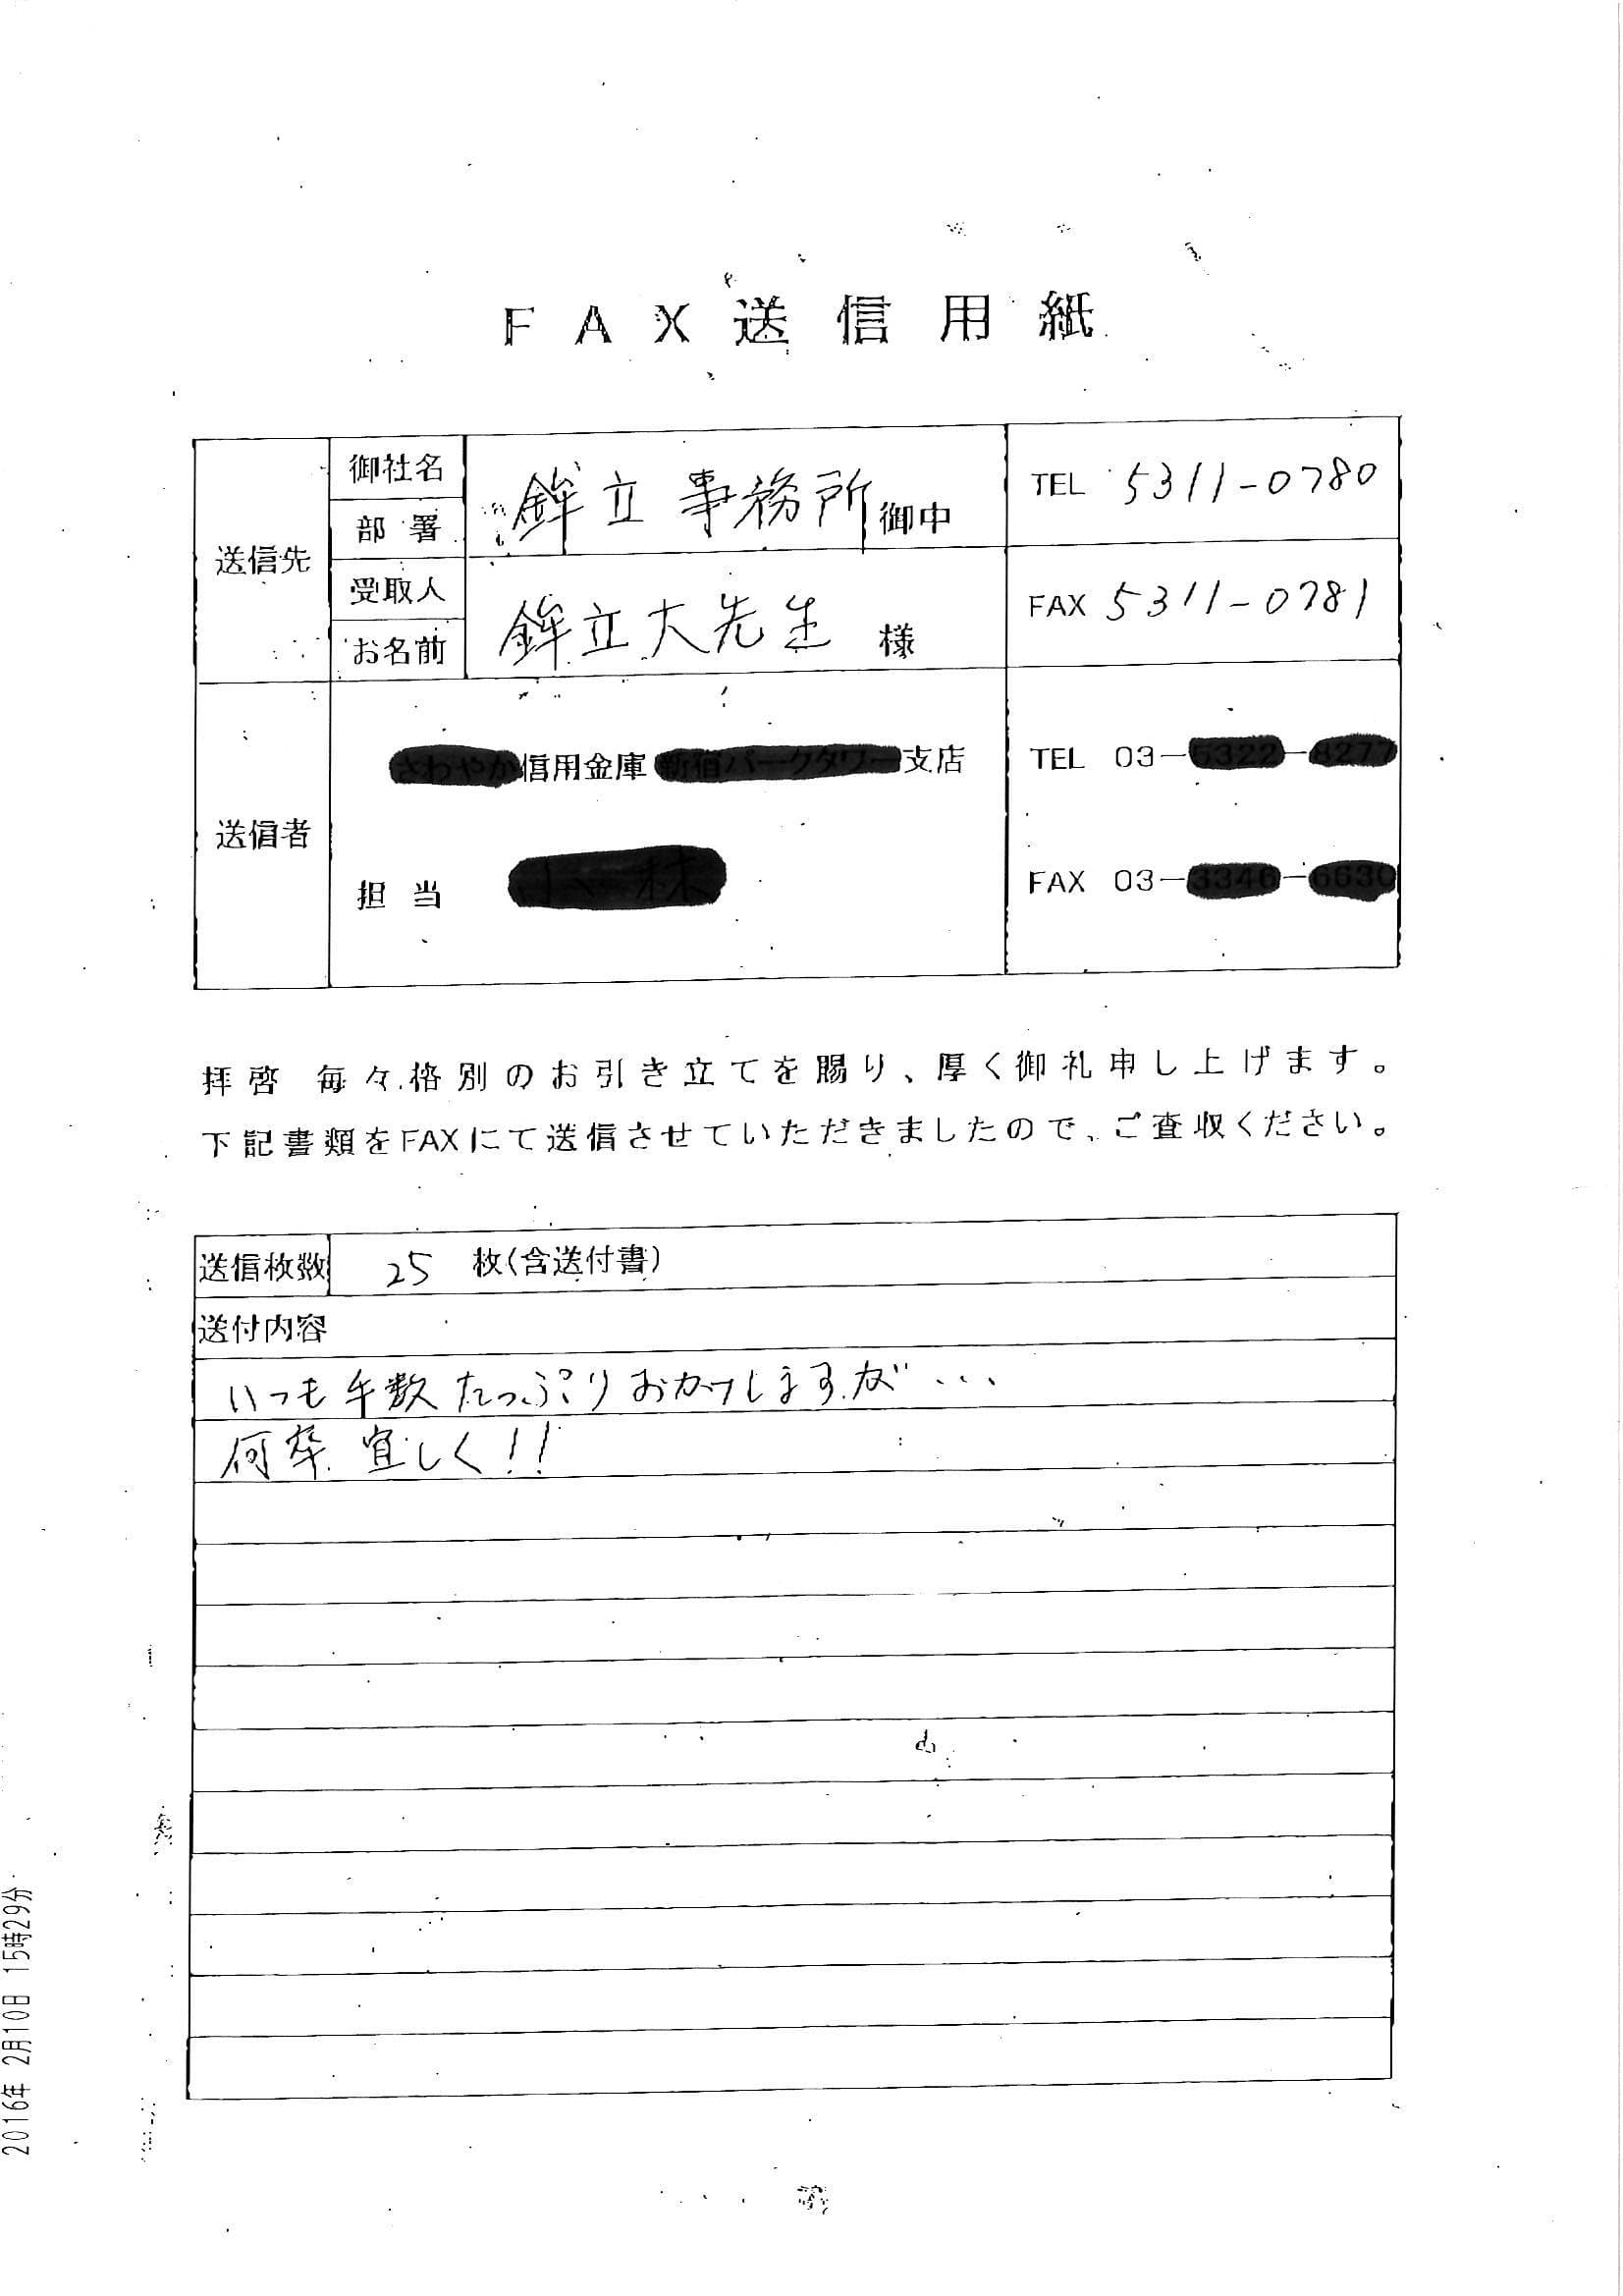 FAX送信用紙
送信先
御社名
部署
鉾立事務所 御中
TEL 5311-0780
受取人
お名前
鉾立大先生 様
FAX 5311-0781
送信者
信用金庫 支店
TEL 03-
担当
FAX 03-
拝啓 毎々格別のお引き立てを賜り、厚く御礼申し上げます。
下記書類をFAXにて送信させていただきましたので、ご査収ください。
送信枚数 25 枚(含送付書)
送付内容
いつも手数たっぷりおかけしますが...
何卒宜しく!!
2016年 2月10日 15時29分